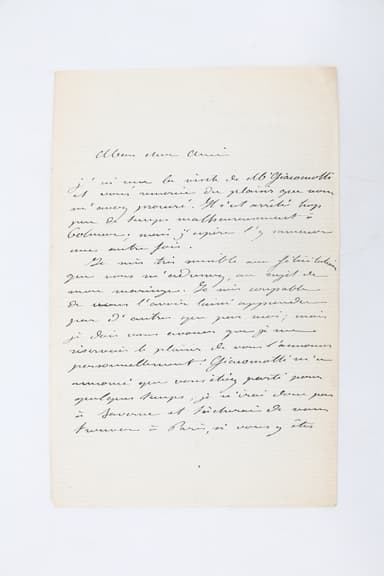 Mon cher Ami
j'ai eu la visite de Mr Giacomotti
et vous remercie du plaisir que vous
m'avez procuré. Il s'est arrêté trop
peu de temps malheureusement à
Colmar; mais j'espère l'y ramener
une autre fois.
Je suis très sensible aux félicitations
que vous m'adressez, au sujet de
mon mariage. Je suis coupable
de vous l'avoir laissé apprendre
par d'autre que par moi; mais
je dois vous avouer que je me
réservais le plaisir de vous l'annoncer
personnellement. Giacomotti m'a
annoncé que vous étiez parti pour
quelque temps, je n'irai donc pas
à Saverne et tâcherai de vous
trouver à Paris, si vous y êtes